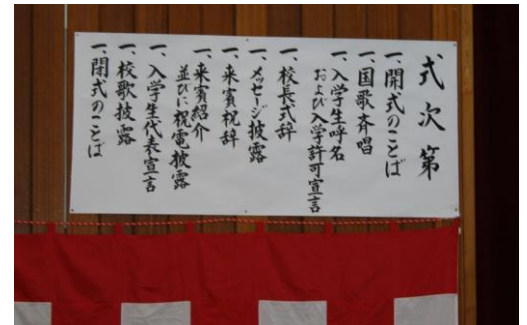 式次第
一、開式のことば
一、国歌斉唱
一、入学生呼名
および入学許可宣言
一、校長式辞
一、メッセージ披露
一、来賓祝辞
一、来賓紹介
並びに祝電披露
一、入学生代表宣言
一、校歌披露
一、閉式のことば